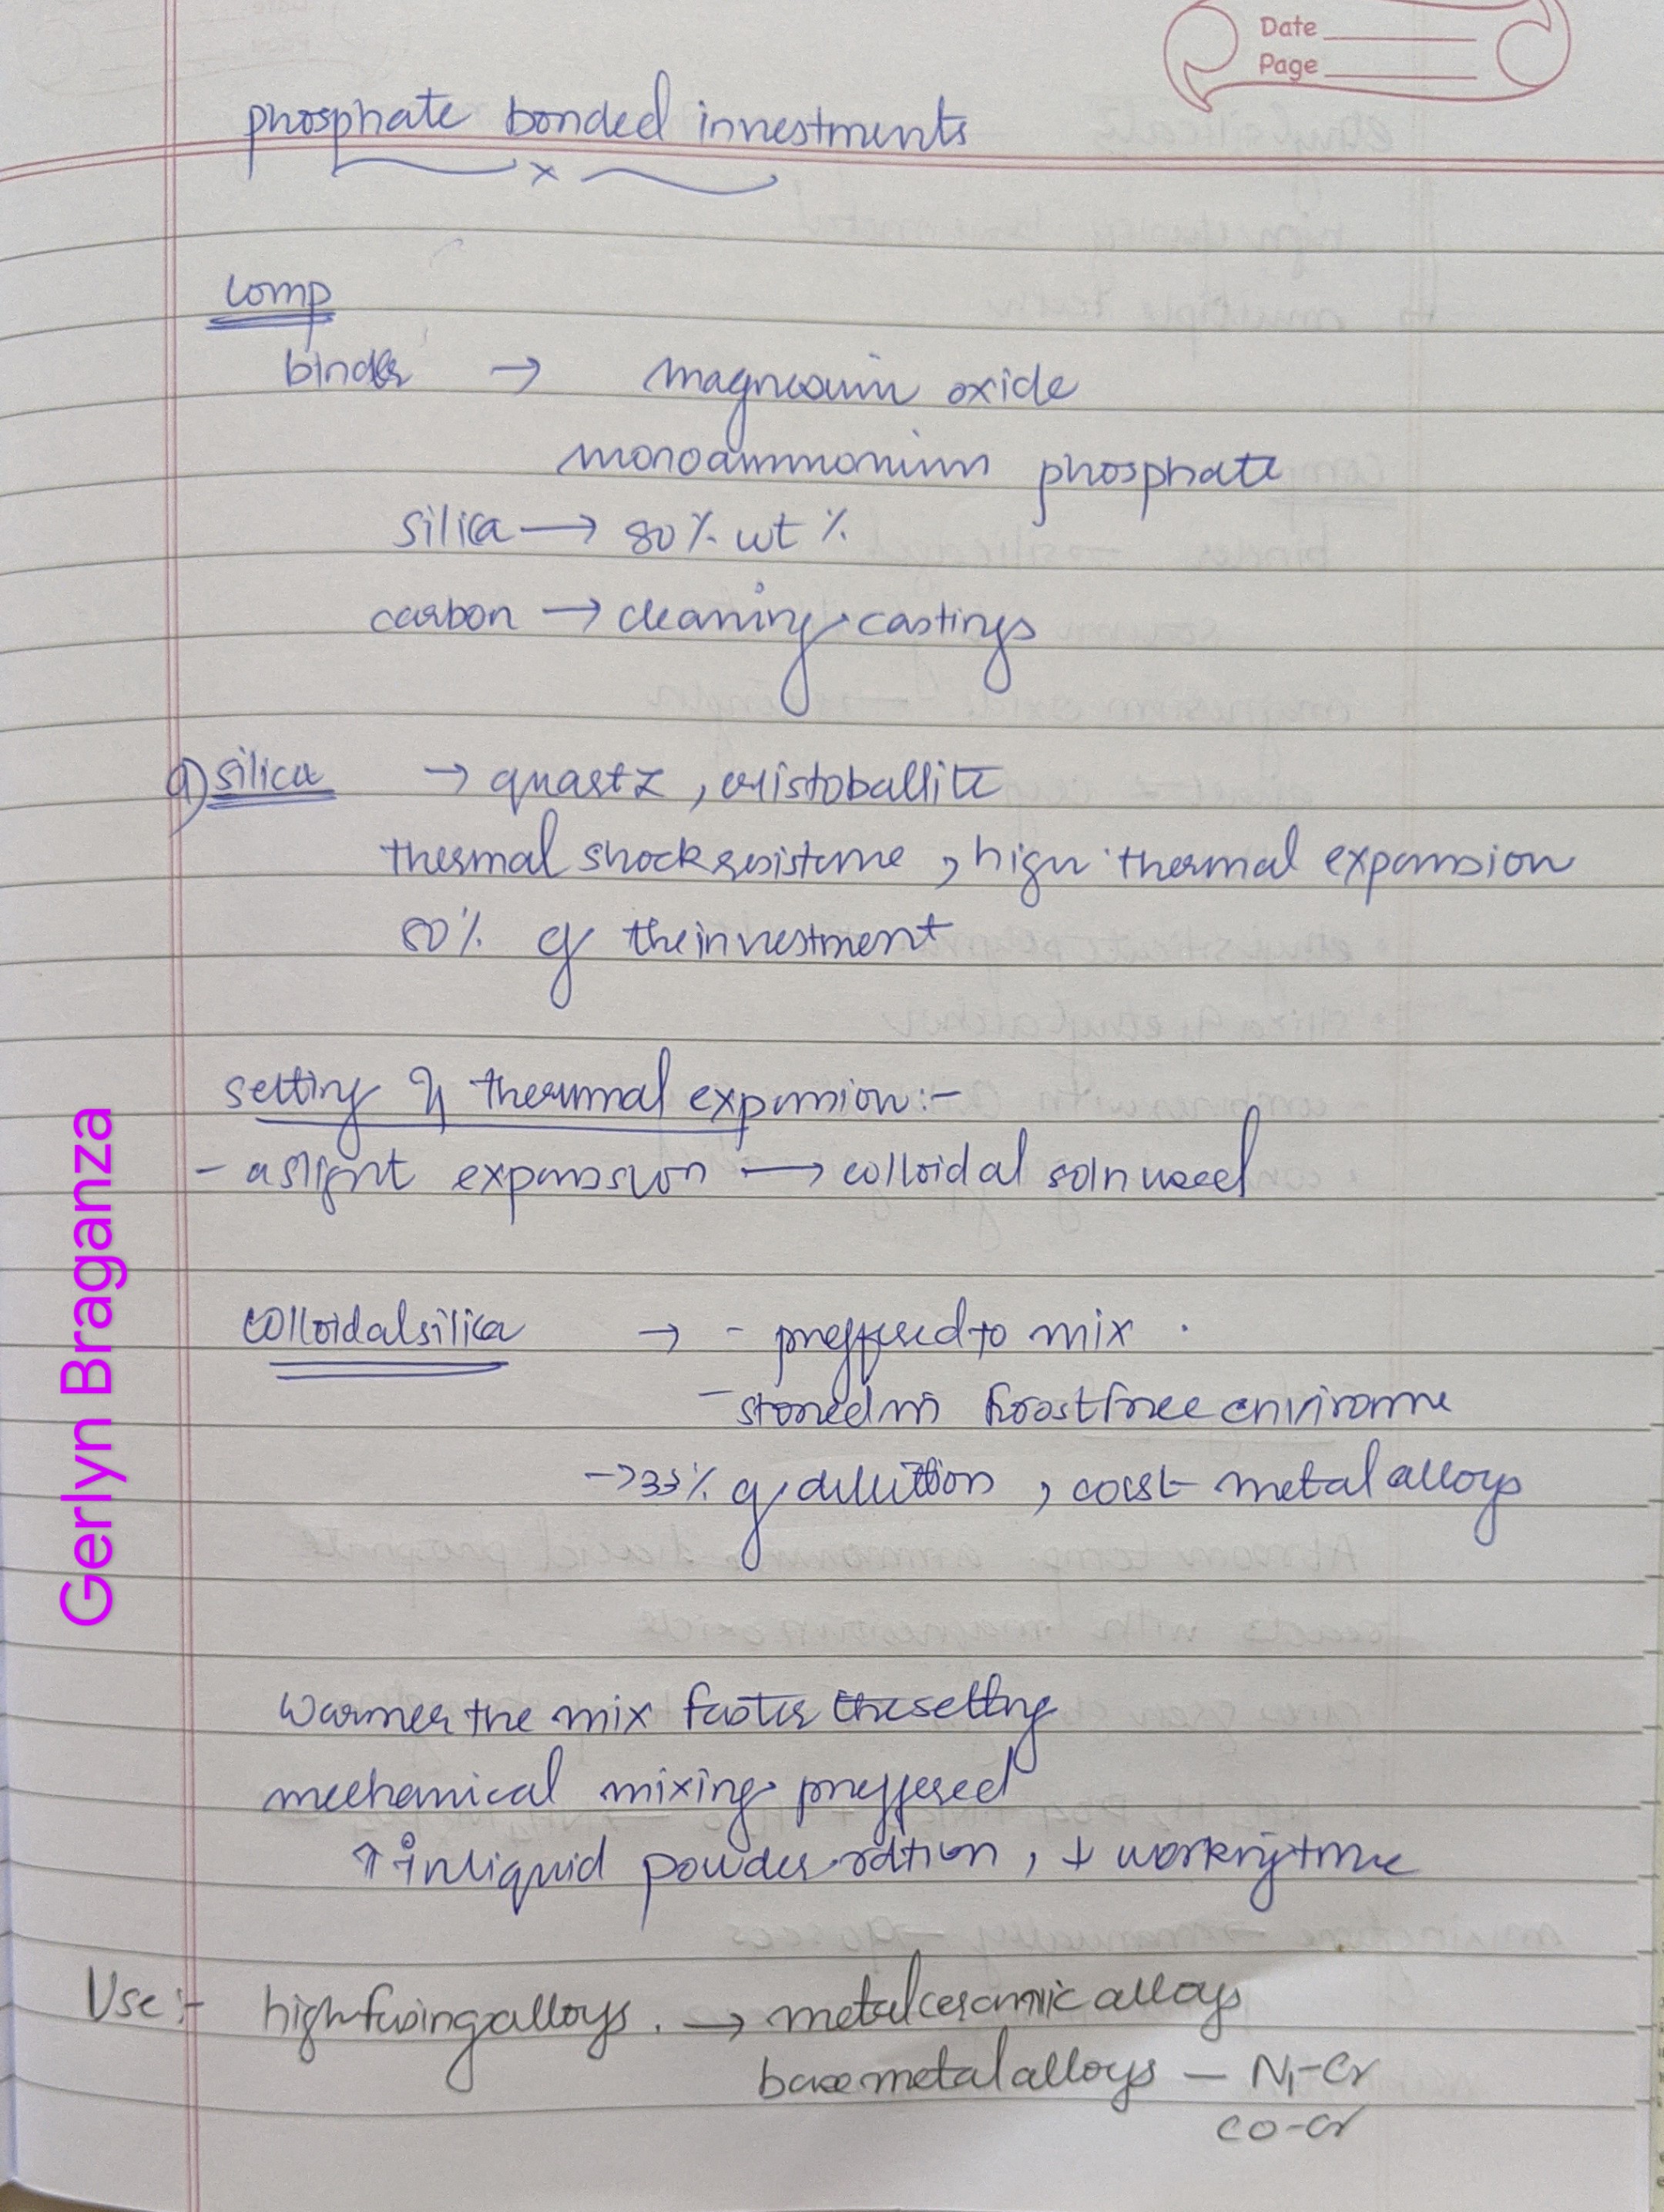 Date
Page
phosphate bonded investments
x
comp
binder → magnesium oxide
monoammonium phosphate
silica → 80% wt %
carbon → cleaning castings
a) silica → quartz, cristoballite
thermal shock resistance, high thermal expansion
80% of the investment
setting & thermal expansion:-
- a slight expansion → colloidal soln used
colloidal silica → - preffered to mix
- stored in frost free environme
→ 33% of dilution, cast metal alloys
Warmer the mix faster the setting
mechanical mixing preffered
↑ in liquid powder ration, ↓ working time
Use:- high fusing alloys. → metal ceramic alloys
base metal alloys - Ni-Cr
co-cr
Gerlyn Braganza